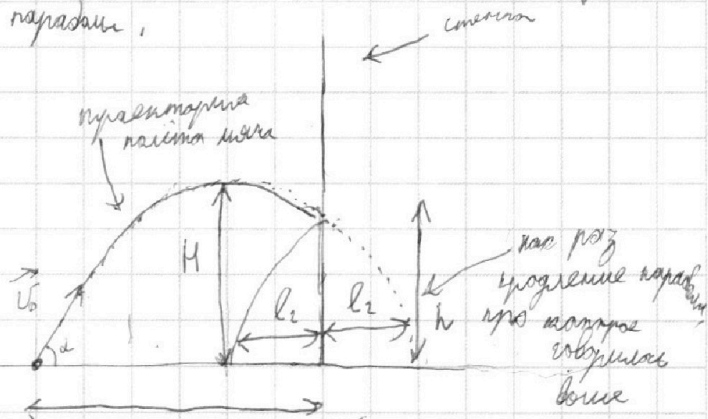 параболы,
стенка
траектория
полёта мяча
H
как раз
продление параболы,
υ₀
l₂
l₂
h
про которое
α
говорилось
выше